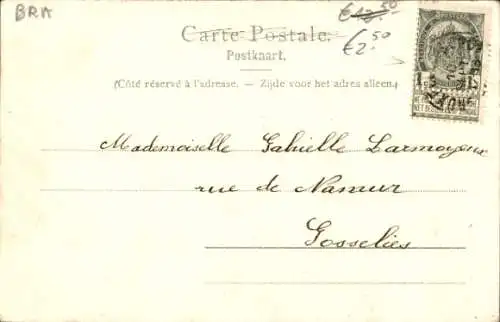 BRA
€12.50
€2.50
Carte Postale.
Postkaart.
(Côté réservé à l'adresse. — Zijde voor het adres alleen.)
Mademoiselle Gabrielle Larmoyeux
rue de Namur
Gosselies